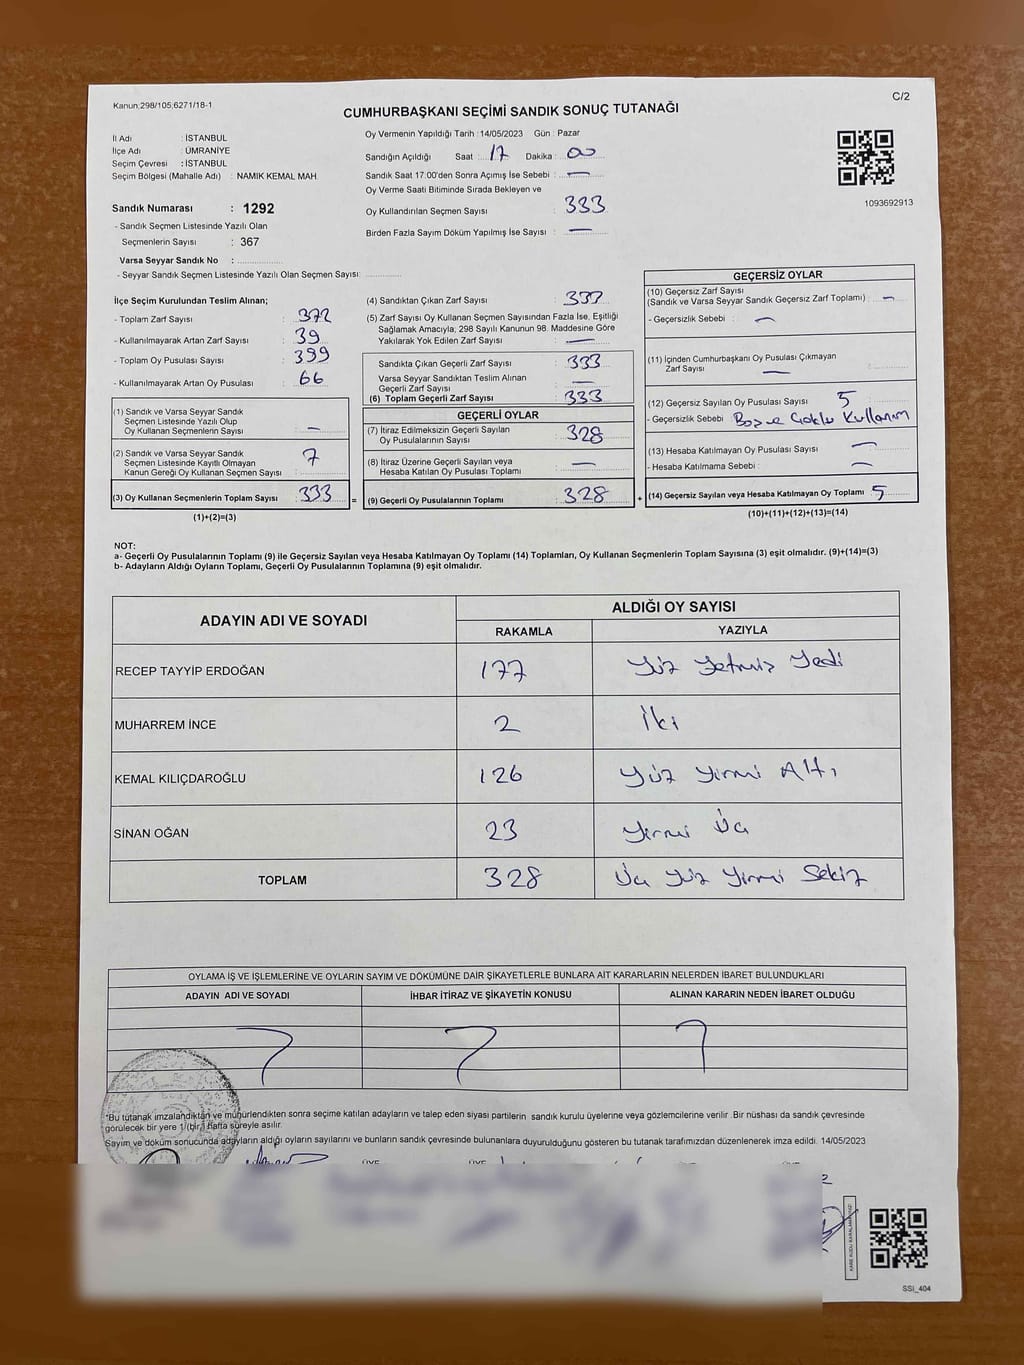 Kanun:298/105;6271/18-1
C/2
CUMHURBAŞKANI SEÇİMİ SANDIK SONUÇ TUTANAĞI
İl Adı : İSTANBUL
İlçe Adı : ÜMRANİYE
Seçim Çevresi : İSTANBUL
Seçim Bölgesi (Mahalle Adı) : NAMIK KEMAL MAH.
Sandık Numarası : 1292
- Sandık Seçmen Listesinde Yazılı Olan
Seçmenlerin Sayısı : 367
Varsa Seyyar Sandık No :
- Seyyar Sandık Seçmen Listesinde Yazılı Olan Seçmen Sayısı:
Oy Vermenin Yapıldığı Tarih : 14/05/2023 Gün : Pazar
Sandığın Açıldığı Saat : 17 Dakika : 00
Sandık Saat 17.00'den Sonra Açımış İse Sebebi : —
Oy Verme Saati Bitiminde Sırada Bekleyen ve
Oy Kullandırılan Seçmen Sayısı : 333
Birden Fazla Sayım Döküm Yapılmış İse Sayısı : —
1093692913
İlçe Seçim Kurulundan Teslim Alınan;
- Toplam Zarf Sayısı : 372
- Kullanılmayarak Artan Zarf Sayısı : 39
- Toplam Oy Pusulası Sayısı : 399
- Kullanılmayarak Artan Oy Pusulası : 66
(1) Sandık ve Varsa Seyyar Sandık
Seçmen Listesinde Yazılı Olup
Oy Kullanan Seçmenlerin Sayısı : —
(2) Sandık ve Varsa Seyyar Sandık
Seçmen Listesinde Kayıtlı Olmayan
Kanun Gereği Oy Kullanan Seçmen Sayısı : 7
(3) Oy Kullanan Seçmenlerin Toplam Sayısı : 333
(1)+(2)=(3)
=
(4) Sandıktan Çıkan Zarf Sayısı : 333
(5) Zarf Sayısı Oy Kullanan Seçmen Sayısından Fazla İse, Eşitliği
Sağlamak Amacıyla; 298 Sayılı Kanunun 98. Maddesine Göre
Yakılarak Yok Edilen Zarf Sayısı : —
Sandıkta Çıkan Geçerli Zarf Sayısı : 333
Varsa Seyyar Sandıktan Teslim Alınan
Geçerli Zarf Sayısı : —
(6) Toplam Geçerli Zarf Sayısı : 333
GEÇERLİ OYLAR
(7) İtiraz Edilmeksizin Geçerli Sayılan
Oy Pusulalarının Sayısı : 328
(8) İtiraz Üzerine Geçerli Sayılan veya
Hesaba Katılan Oy Pusulası Toplamı : —
(9) Geçerli Oy Pusulalarının Toplamı : 328
+
GEÇERSİZ OYLAR
(10) Geçersiz Zarf Sayısı
(Sandık ve Varsa Seyyar Sandık Geçersiz Zarf Toplamı) : —
- Geçersizlik Sebebi : —
(11) İçinden Cumhurbaşkanı Oy Pusulası Çıkmayan
Zarf Sayısı : —
(12) Geçersiz Sayılan Oy Pusulası Sayısı : 5
- Geçersizlik Sebebi : Boş ve Çoklu Kullanım
(13) Hesaba Katılmayan Oy Pusulası Sayısı : —
- Hesaba Katılmama Sebebi : —
(14) Geçersiz Sayılan veya Hesaba Katılmayan Oy Toplamı : 5
(10)+(11)+(12)+(13)=(14)
NOT:
a- Geçerli Oy Pusulalarının Toplamı (9) ile Geçersiz Sayılan veya Hesaba Katılmayan Oy Toplamı (14) Toplamları, Oy Kullanan Seçmenlerin Toplam Sayısına (3) eşit olmalıdır. (9)+(14)=(3)
b- Adayların Aldığı Oyların Toplamı, Geçerli Oy Pusulalarının Toplamına (9) eşit olmalıdır.
ADAYIN ADI VE SOYADI
ALDIĞI OY SAYISI
RAKAMLA YAZIYLA
RECEP TAYYİP ERDOĞAN 177 Yüz Yetmiş Yedi
MUHARREM İNCE 2 İki
KEMAL KILIÇDAROĞLU 126 Yüz Yirmi Altı
SİNAN OĞAN 23 Yirmi Üç
TOPLAM 328 Üç Yüz Yirmi Sekiz
OYLAMA İŞ VE İŞLEMLERİNE VE OYLARIN SAYIM VE DÖKÜMÜNE DAİR ŞİKAYETLERLE BUNLARA AİT KARARLARIN NELERDEN İBARET BULUNDUKLARI
ADAYIN ADI VE SOYADI İHBAR İTİRAZ VE ŞİKAYETİN KONUSU ALINAN KARARIN NEDEN İBARET OLDUĞU
*Bu tutanak imzalandıktan ve mühürlendikten sonra seçime katılan adayların ve talep eden siyasi partilerin sandık kurulu üyelerine veya gözlemcilerine verilir .Bir nüshası da sandık çevresinde
görülecek bir yere 1 (bir) hafta süreyle asılır.
Sayım ve döküm sonucunda adayların aldığı oyların sayılarını ve bunların sandık çevresinde bulunanlara duyurulduğunu gösteren bu tutanak tarafımızdan düzenlenerek imza edildi. 14/05/2023
SSİ_404